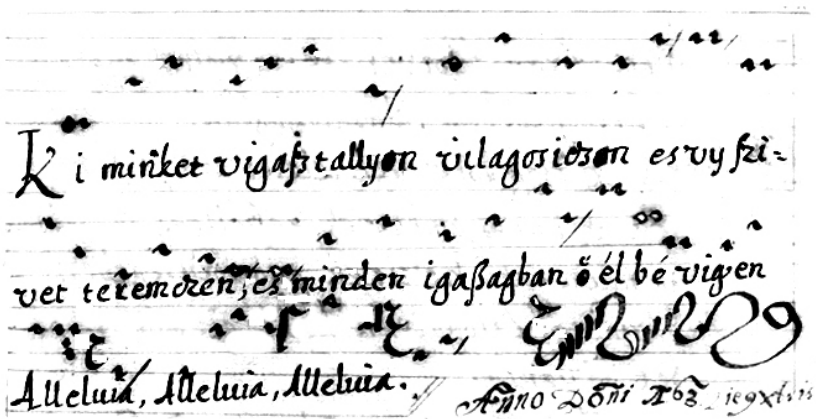 Ki minket vigaſztallyon vilagosiczon es vy ſzi-
vet teremczen, es minden igaßagban ő él bé vigyen
Alleluia, Alleluia, Alleluia.
Anno Doni